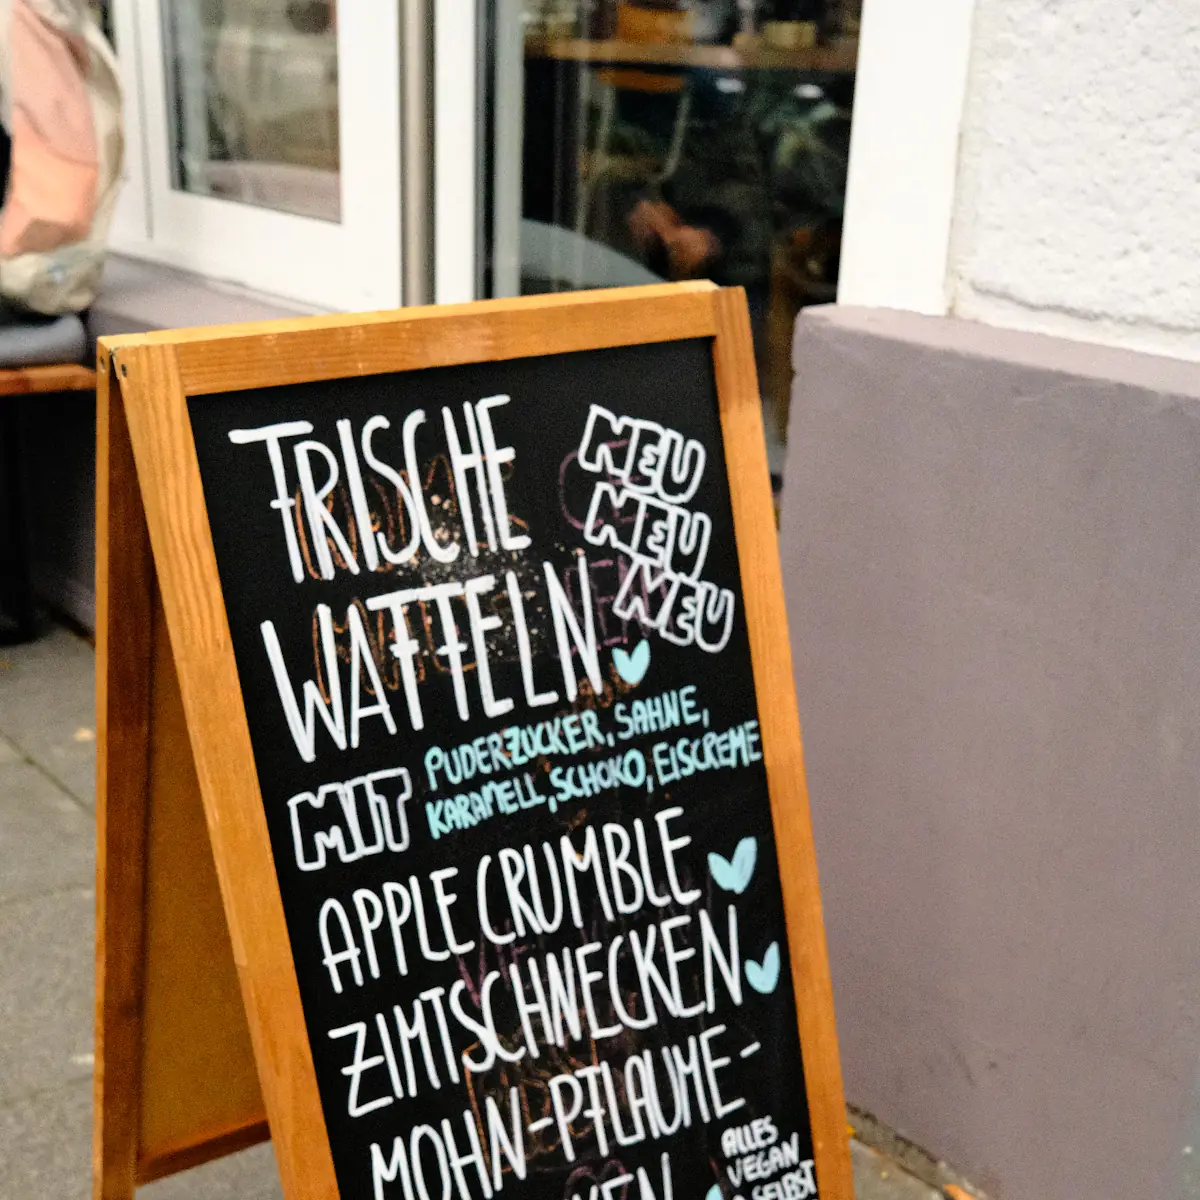 FRISCHE
WAFFELN
NEU
NEU
NEU
MIT
PUDERZUCKER, SAHNE,
KARAMELL, SCHOKO, EISCREME
APPLE CRUMBLE
ZIMTSCHNECKEN
MOHN-PFLAUME-
ALLES
VEGAN
SELBST